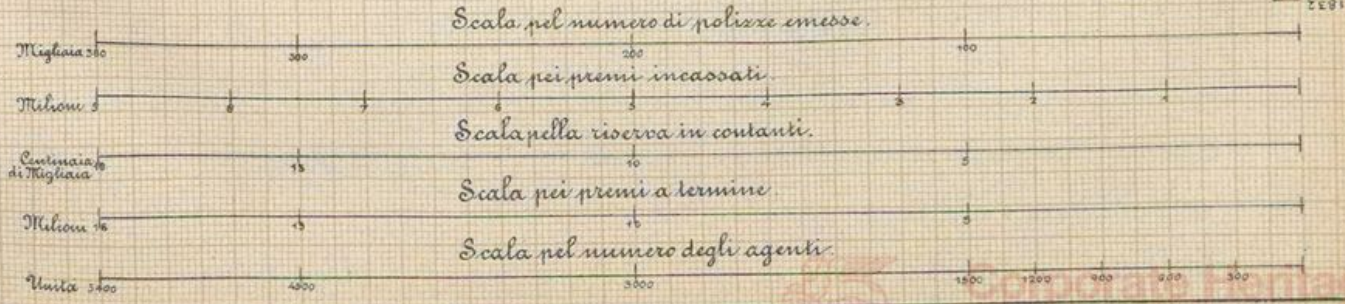 1832
Scala pel numero di polizze emesse.
Migliaia 360 300 200 100
Scala pei premi incassati.
Milioni 9 8 7 6 5 4 3 2 1
Scala pella riserva in contanti.
Centinaia
di Migliaia 18 15 10 5
Scala pei premi a termine
Milioni 18 15 10 5
Scala pel numero degli agenti.
Unità 5400 4500 3000 1500 1200 900 600 300
Corporate Heritag